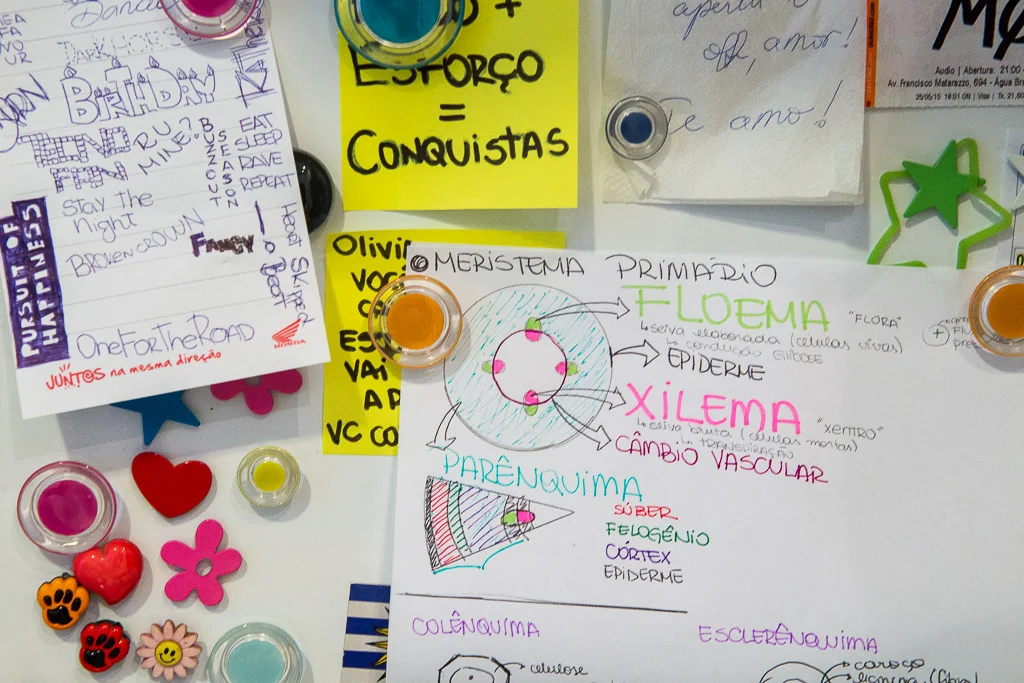 Danc
DARK HORSE
BIRTHDAY
FINE
FUN
R U MINE?
BUZZCUT
SEASON
EAT
SLEEP
RAVE
REPEAT
Stay the
Night
BROKENCROWN
FANCY
Heart Skipped
a Beat
PURSUIT OF
HAPPINESS
ONEFORTHEROAD
JUNTOS na mesma direção
HONDA
+
ESFORÇO
=
CONQUISTAS
off, amor!
Te amo!
Audio | Abertura: 21:00
Av. Francisco Matarazzo, 694 - Água Br
OLIVI
VOC
ES
VAI
AP
VC CO
MERISTEMA PRIMÁRIO
FLOEMA "FLORA"
↳ seiva elaborada (celulas vivas)
↳ condução GLICOSE
EPIDERME
XILEMA "XENTRO"
↳ seiva bruta (celulas mortas)
↳ TRANSPIRAÇÃO
CÂMBIO VASCULAR
PARÊNQUIMA
SÚBER
FELOGÊNIO
CÓRTEX
EPIDERME
COLÊNQUIMA
ESCLERÊNQUIMA
celulose
caroço
lignina (fibra)